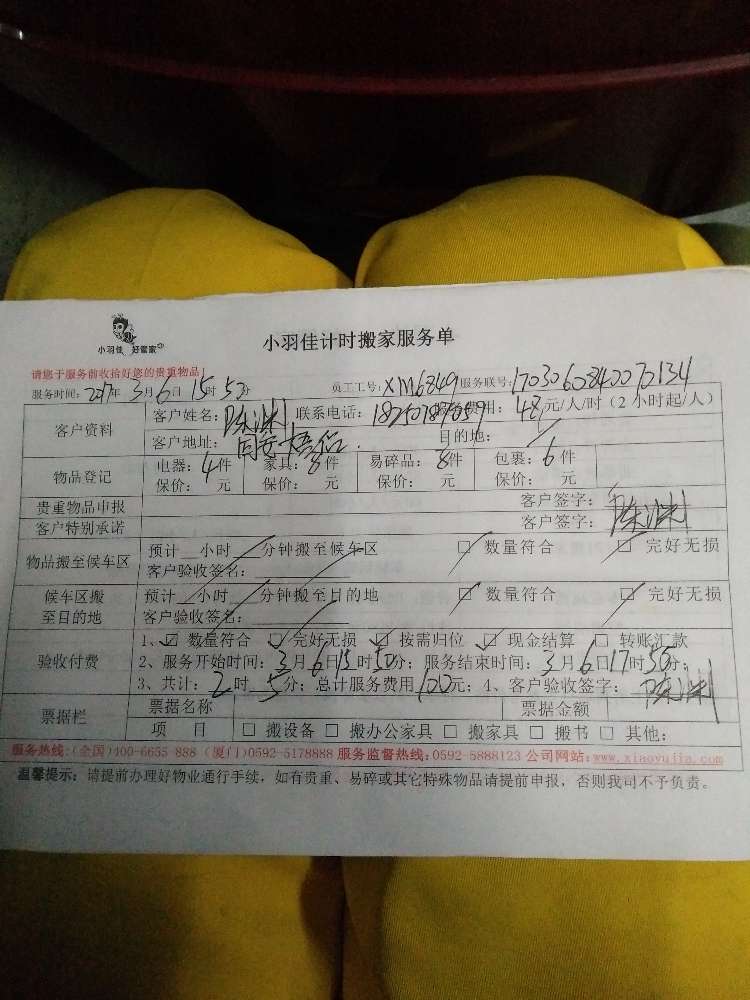 小羽佳 好管家
小羽佳计时搬家服务单
请您于服务前收拾好您的贵重物品!
服务时间: 2017年 3月 6日 15时 50分 员工工号: XM6849 服务联号: 1703060840070134
客户资料
客户姓名: 陈渊 联系电话: 费用: 48元/人/时(2小时起/人)
客户地址: 同安 目的地:
物品登记
电器: 4件 家具: 8件 易碎品: 8件 包裹: 6件
保价: 元 保价: 元 保价: 元 保价: 元
贵重物品申报 客户签字:
客户特别承诺 客户签字: 陈渊
物品搬至候车区
预计 小时 分钟搬至候车区 □ 数量符合 □ 完好无损
客户验收签名:
候车区搬至目的地
预计 小时 分钟搬至目的地 □ 数量符合 □ 完好无损
客户验收签名:
验收付费
1、☑ 数量符合 ☑ 完好无损 ☑ 按需归位 ☑ 现金结算 □ 转账汇款
2、服务开始时间: 3月6日15时50分; 服务结束时间: 3月6日17时55分;
3、共计: 2时 5分; 总计服务费用 100元; 4、客户验收签字: 陈渊
票据栏
票据名称 票据金额
项 目 □ 搬设备 □ 搬办公家具 □ 搬家具 □ 搬书 □ 其他:
服务热线:(全国)400-6655-888 (厦门)0592-5178888 服务监督热线:0592-5888123 公司网站:www.xiaoyujia.com
温馨提示: 请提前办理好物业通行手续, 如有贵重、易碎或其它特殊物品请提前申报, 否则我司不予负责。